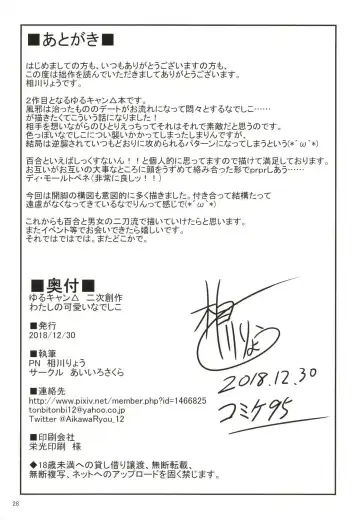 ■あとがき■
はじめましての方も、いつもありがとうございますの方も、
この度は拙作を読んでいただきましてありがとうございます。
相川りょうです。
2作目となるゆるキャン△本です。
風邪は治ったもののデートがお流れになって悶々とするなでしこ……
が描きたくてこういう話になりました!
相手を想いながらのひとりえっちってそれはそれで素敵だと思うのです。
色っぽいなでしこについ襲いかかってしまったしまりんですが、
結局は逆襲されていつもどおりに攻められるパターンになってしまうという(*´ω`*)
百合といえばしっくすないん!!と個人的に思ってますので描けて満足しております。
お互いがお互いの大事なところに頭をうずめて絡み合った形でprprしあう……
ディ・モールトベネ(非常に良しッ!!)
今回は開脚の構図も意図的に多く描きました。付き合って結構たって
遠慮がなくなってきているなでりんって感じで(*´ω`*)
これからも百合と男女の二刀流で描いていけたらと思います。
またイベント等でお会いできたら嬉しいです。
それではではでは。またどこかで。
■奥付■
ゆるキャン△　二次創作
わたしの可愛いなでしこ
■発行
2018/12/30
■執筆
PN　相川りょう
サークル　あいいろさくら
■連絡先
http://www.pixiv.net/member.php?id=1466825
tonbitonbi12@yahoo.co.jp
Twitter @AikawaRyou_12
■印刷会社
栄光印刷　様
◆18歳未満への貸し借り譲渡、無断転載、
無断複写、ネットへのアップロードを固く禁じます。
相川りょう
2018.12.30
コミケ95
26